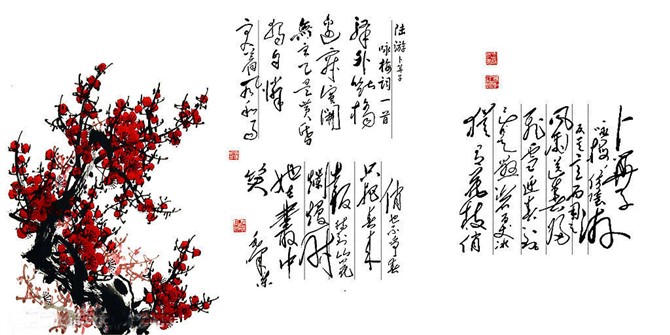 卜算子
咏梅 读陆游
反其意而用之
风雨送春归
飞雪迎春到
已是悬崖百丈冰
犹有花枝俏
陆游卜算子
咏梅词一首
驿外断桥
边寂寞开
无主已是黄昏
独自愁
更着风和雨
俏也不争春
只把春来
报 待到山花
烂熳时
她在丛中
笑
毛泽东